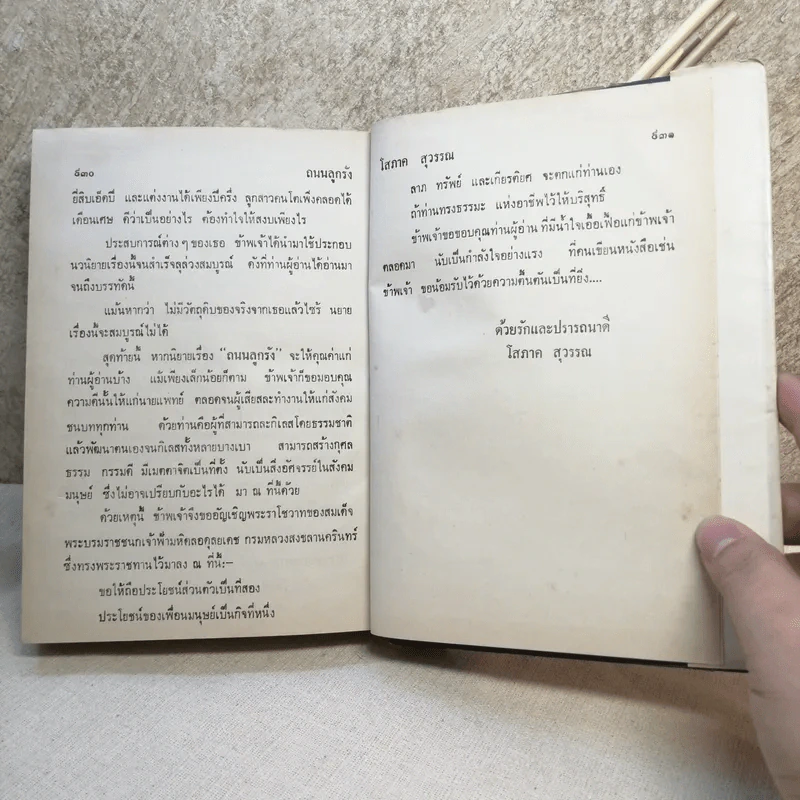 ๕๓๐ ถนนลูกรัง
ยี่สิบเอ็ดปี และแต่งงานได้เพียงปีครึ่ง ลูกสาวคนโตเพิ่งคลอดได้
เดือนเศษ ดีว่าเป็นอย่างไร ต้องทำใจให้สงบเพียงไร
ประสบการณ์ต่าง ๆ ของเธอ ข้าพเจ้าได้นำมาใช้ประกอบ
นวนิยายเรื่องนี้จนสำเร็จลุล่วงสมบูรณ์ ดังที่ท่านผู้อ่านได้อ่านมา
จนถึงบรรทัดนี้
แม้นหากว่า ไม่มีวัตถุดิบของจริงจากเธอแล้วไซร้ นยาย
เรื่องนี้จะสมบูรณ์ไม่ได้
สุดท้ายนี้ หากนิยายเรื่อง "ถนนลูกรัง" จะให้คุณค่าแก่
ท่านผู้อ่านบ้าง แม้เพียงเล็กน้อยก็ตาม ข้าพเจ้าก็ขอมอบคุณ
ความดีนั้นให้แก่นายแพทย์ ตลอดจนผู้เสียสละทำงานให้แก่สังคม
ชนบททุกท่าน ด้วยท่านคือผู้ที่สามารถละกิเลสโดยธรรมชาติ
แล้วพัฒนาตนเองจนกิเลสทั้งหลายบางเบา สามารถสร้างกุศล
ธรรม กรรมดี มีเมตตาจิตเป็นที่ตั้ง นับเป็นสิ่งอัศจรรย์ในสังคม
มนุษย์ ซึ่งไม่อาจเปรียบกับอะไรได้ มา ณ ที่นี้ด้วย
ด้วยเหตุนี้ ข้าพเจ้าจึงขออัญเชิญพระราโชวาทของสมเด็จ
พระบรมราชชนกเจ้าฟ้ามหิดลอดุลยเดช กรมหลวงสงขลานครินทร์
ซึ่งทรงพระราชทานไว้มาลง ณ ที่นี้:–
ขอให้ถือประโยชน์ส่วนตัวเป็นที่สอง
ประโยชน์ของเพื่อนมนุษย์เป็นกิจที่หนึ่ง
โสภาค สุวรรณ ๕๓๑
ลาภ ทรัพย์ และเกียรติยศ จะตกแก่ท่านเอง
ถ้าท่านทรงธรรมะ แห่งอาชีพไว้ให้บริสุทธิ์
ข้าพเจ้าขอขอบคุณท่านผู้อ่าน ที่มีน้ำใจเอื้อเฟื้อแก่ข้าพเจ้า
ตลอดมา นับเป็นกำลังใจอย่างแรง ที่คนเขียนหนังสือเช่น
ข้าพเจ้า ขอน้อมรับไว้ด้วยความตื้นตันเป็นที่ยิ่ง....
ด้วยรักและปรารถนาดี
โสภาค สุวรรณ